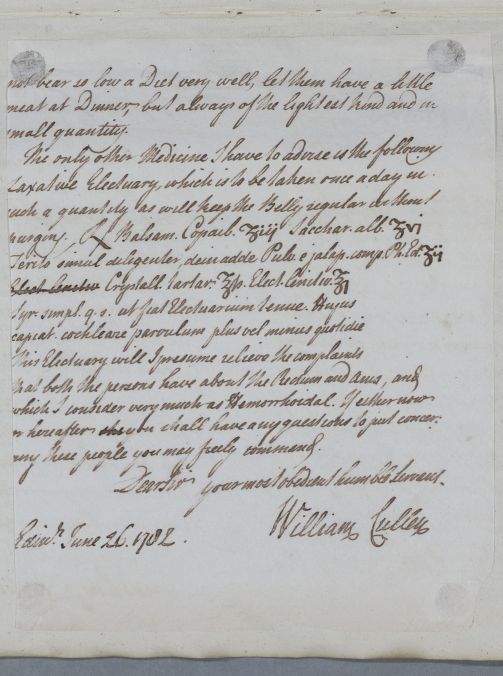 not bear so low a Diet very well, let them have a little
meat at Dinner, but always of the lightest kind and in
small quantity.
The only other Medicine I have to advise is the following
Laxative Electuary, which is to be taken once a day in
such a quantity as will keep the Belly regular without
purging. ℞ Balsam. Copaib. ʒiij Sacchar. alb. ʒvi
Terito simul diligenter dein adde Pulv. e jalap. comp. Ph. Ed. ʒij
Elect. Lenitiv Crystall. tartar. ʒß. Elect. Lenitiv. ℥j
Syr. simpl. q.s. ut fiat Electuarium tenue. Hujus
capiat cochleare parvulum plus vel minus quotidie
This Electuary will I presume relieve the complaints
that both the persons have about the Rectum and Anus, and
which I consider very much as Hemorrhoidal. If either now
or hereafter you shall have any questions to put concer-
ning these people you may freely command.
Dear Sir your most obedient humble servant.
William Cullen
Edinr. June 26. 1782.